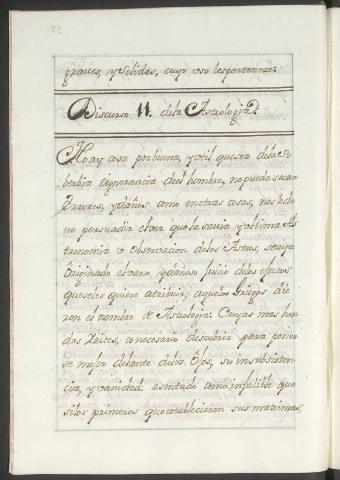 graues, y solidas, cuyo vso les pertenece.
Discurso 11. de la Astrologia.
No ay cosa por buena, y vtil que sea de la So-
berbia è ignorancia del hombre, no puedo sacar
Errores, y daños como en otras cosas, nos lo de-
ue persuadir el ver que la sauia y vtilima As-
tronomia v observacion de los Astros, se aya
originado el vano y dañoso juicio de los efectos
que se les quiere atribuir, a que los Griegos die
ron el nombre de Astrologia: Cuyas mas hon
das Raices, es necesario descubrir para poner
se mejor delante de los Ojos, su insubsisten-
cia, y vanidad: asentado como infalible que
si los primeros que establecieron sus maximas,